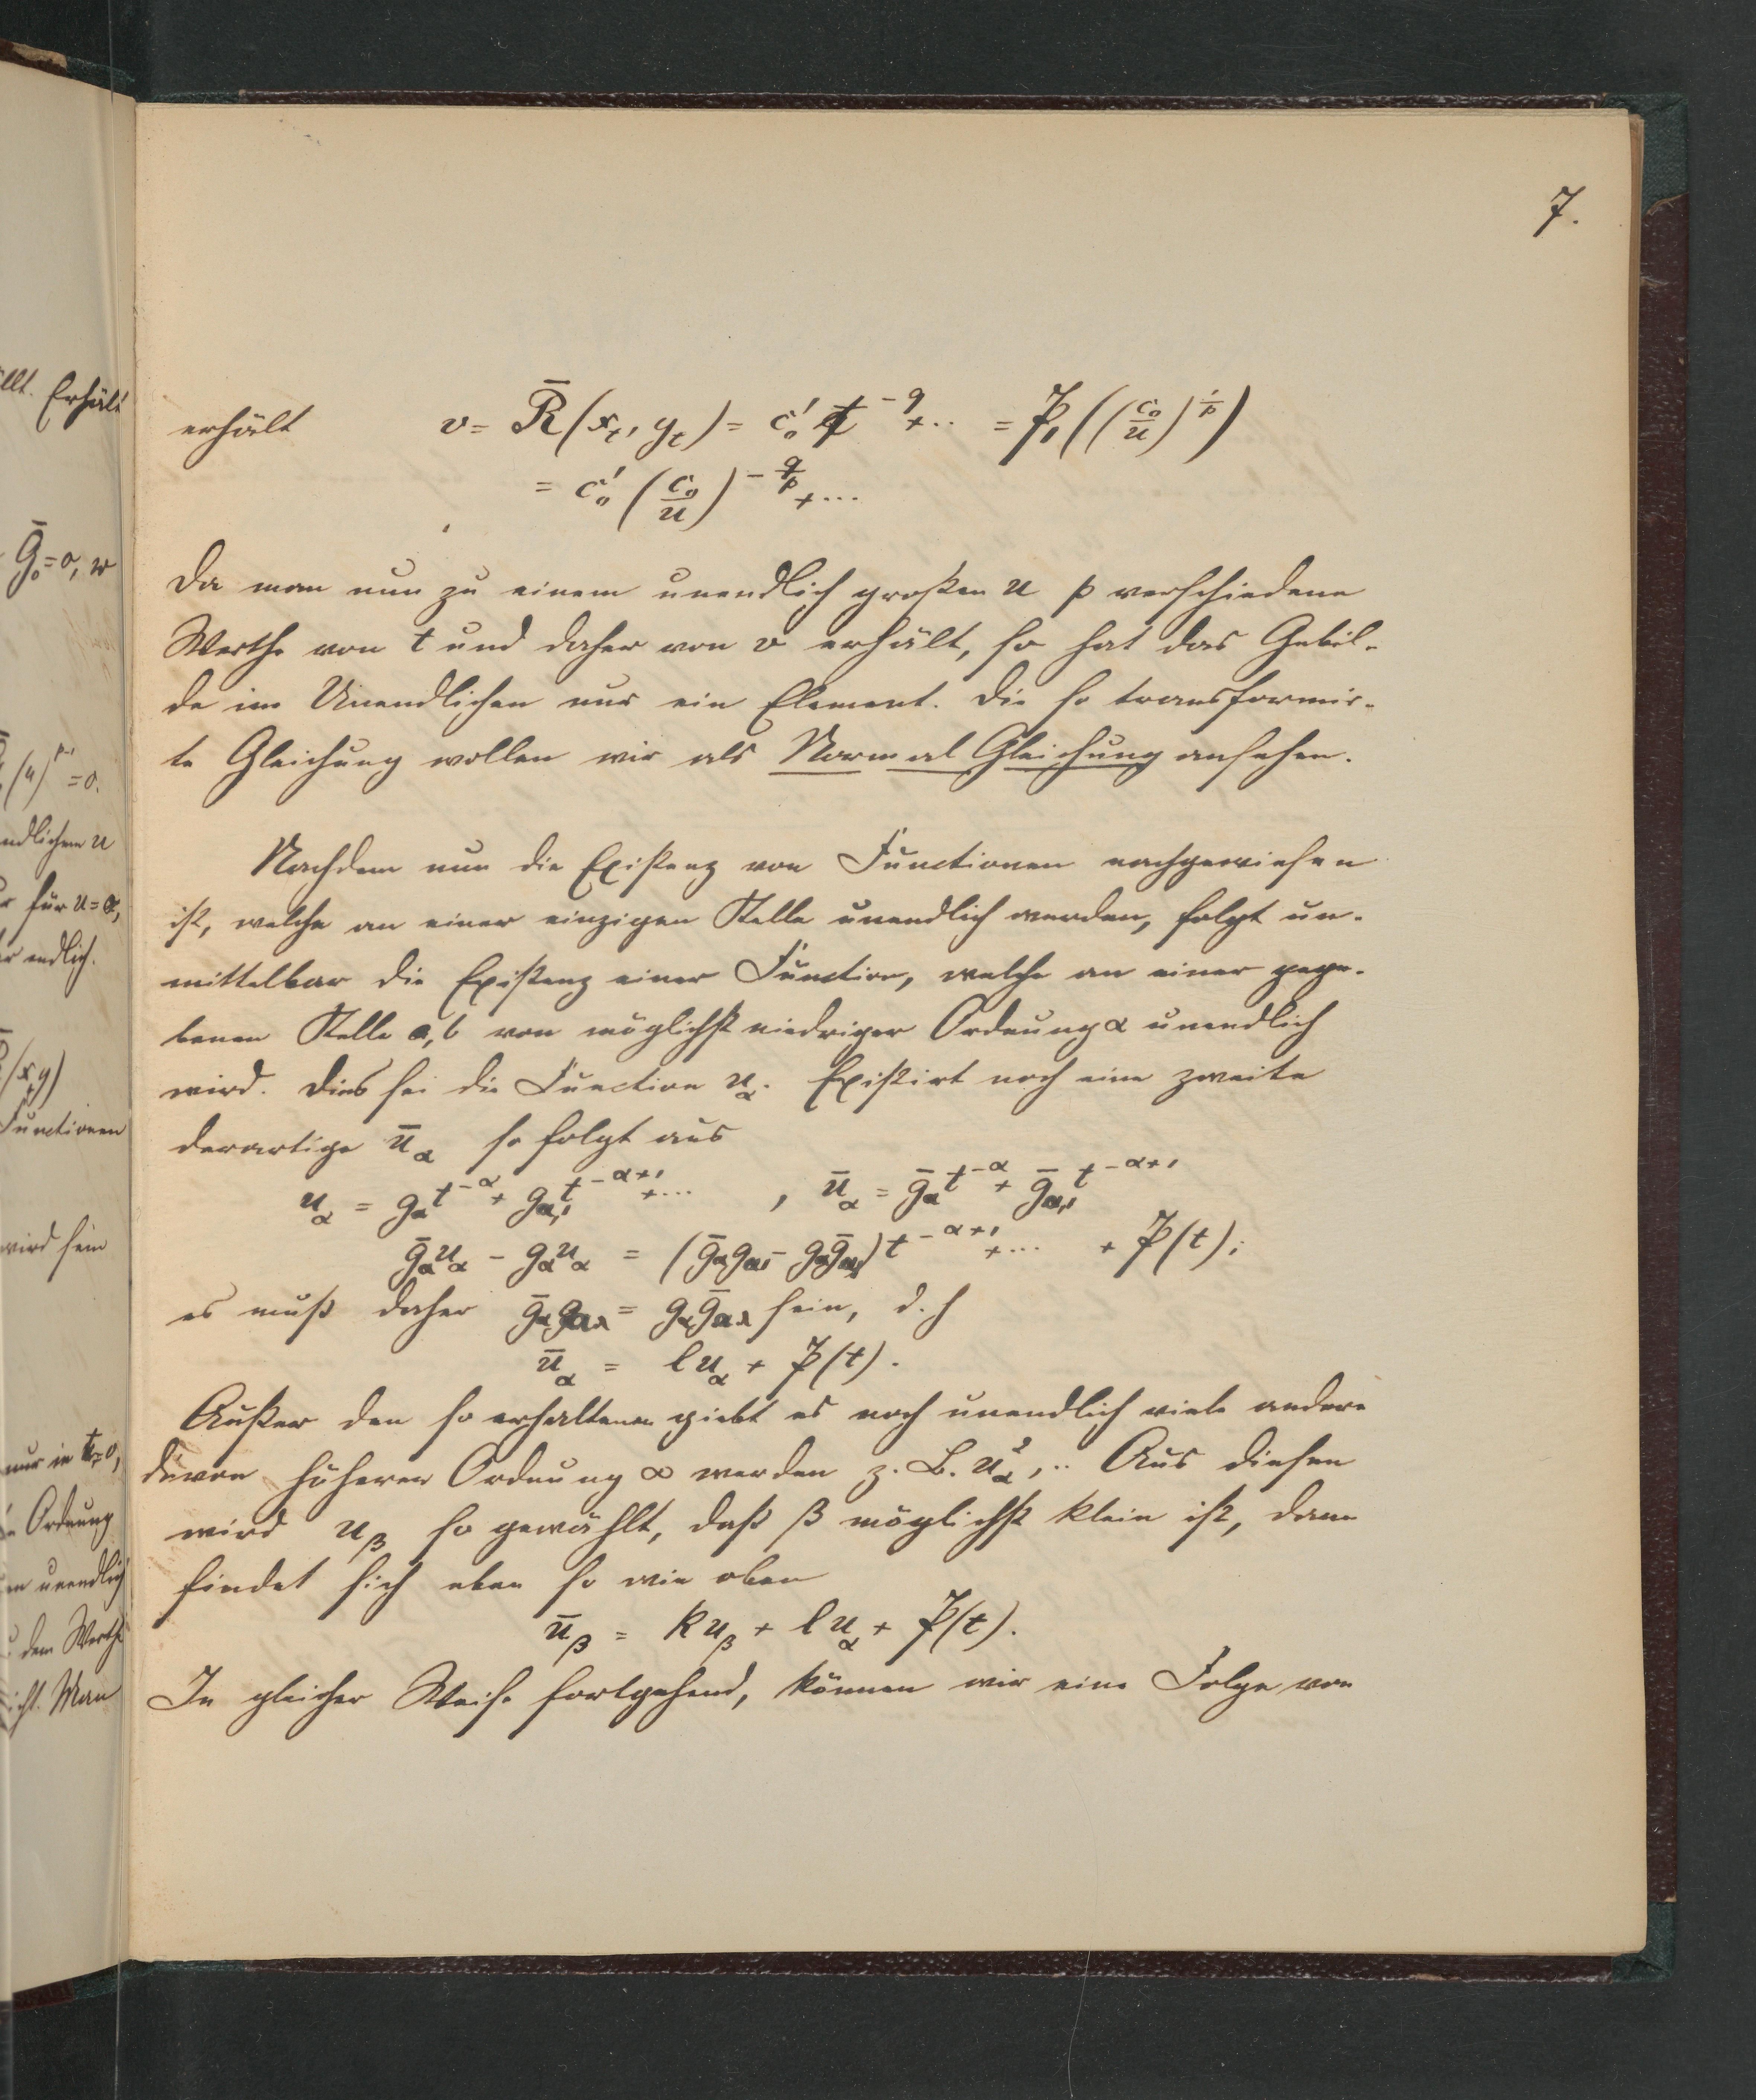 7.
erhält v = R̄(x_t, y_t) = c'_0 t^{-q} + .. = P_1((c_0/u)^{1/p})
= c'_0 (c_0/u)^{-q/p} + ...
Da man nun zu einem unendlich großen u p verschiedene
Werthe von t und daher von v erhält, so hat das Gebil-
de im Unendlichen nur ein Element. Die so transformir-
te Gleichung wollen wir als Normal Gleichung ansehen.
Nachdem nun die Existenz von Functionen nachgewiesen
ist, welche an einer einzigen Stelle unendlich werden, folgt un-
mittelbar die Existenz einer Function, welche an einer gege-
benen Stelle a, b von möglichst niedriger Ordnung α unendlich
wird. Dies sei die Function u_α. Existirt noch eine zweite
derartige ū_α so folgt aus
u_α = g_α t^{-α} + g_{α,1} t^{-α+1} + ... , ū_α = ḡ_α t^{-α} + ḡ_{α,1} t^{-α+1}
ḡ_α u_α - g_α u_α = (ḡ_α g_{α,1} - g_α ḡ_{α,1}) t^{-α+1} + ... + P(t);
es muß daher ḡ_α g_{αλ} = g_α ḡ_{αλ} sein, d. h
ū_α = l u_α + P(t).
Außer den so erhaltenen giebt es noch unendlich viele andere
die von höherer Ordnung ∞ werden z. B. u_α^2, .. Aus diesen
wird u_β so gewählt, daß β möglichst klein ist, dann
findet sich eben so wie oben
ū_β = k u_β + l u_α + P(t).
In gleicher Weise fortgehend, können wir eine Folge von